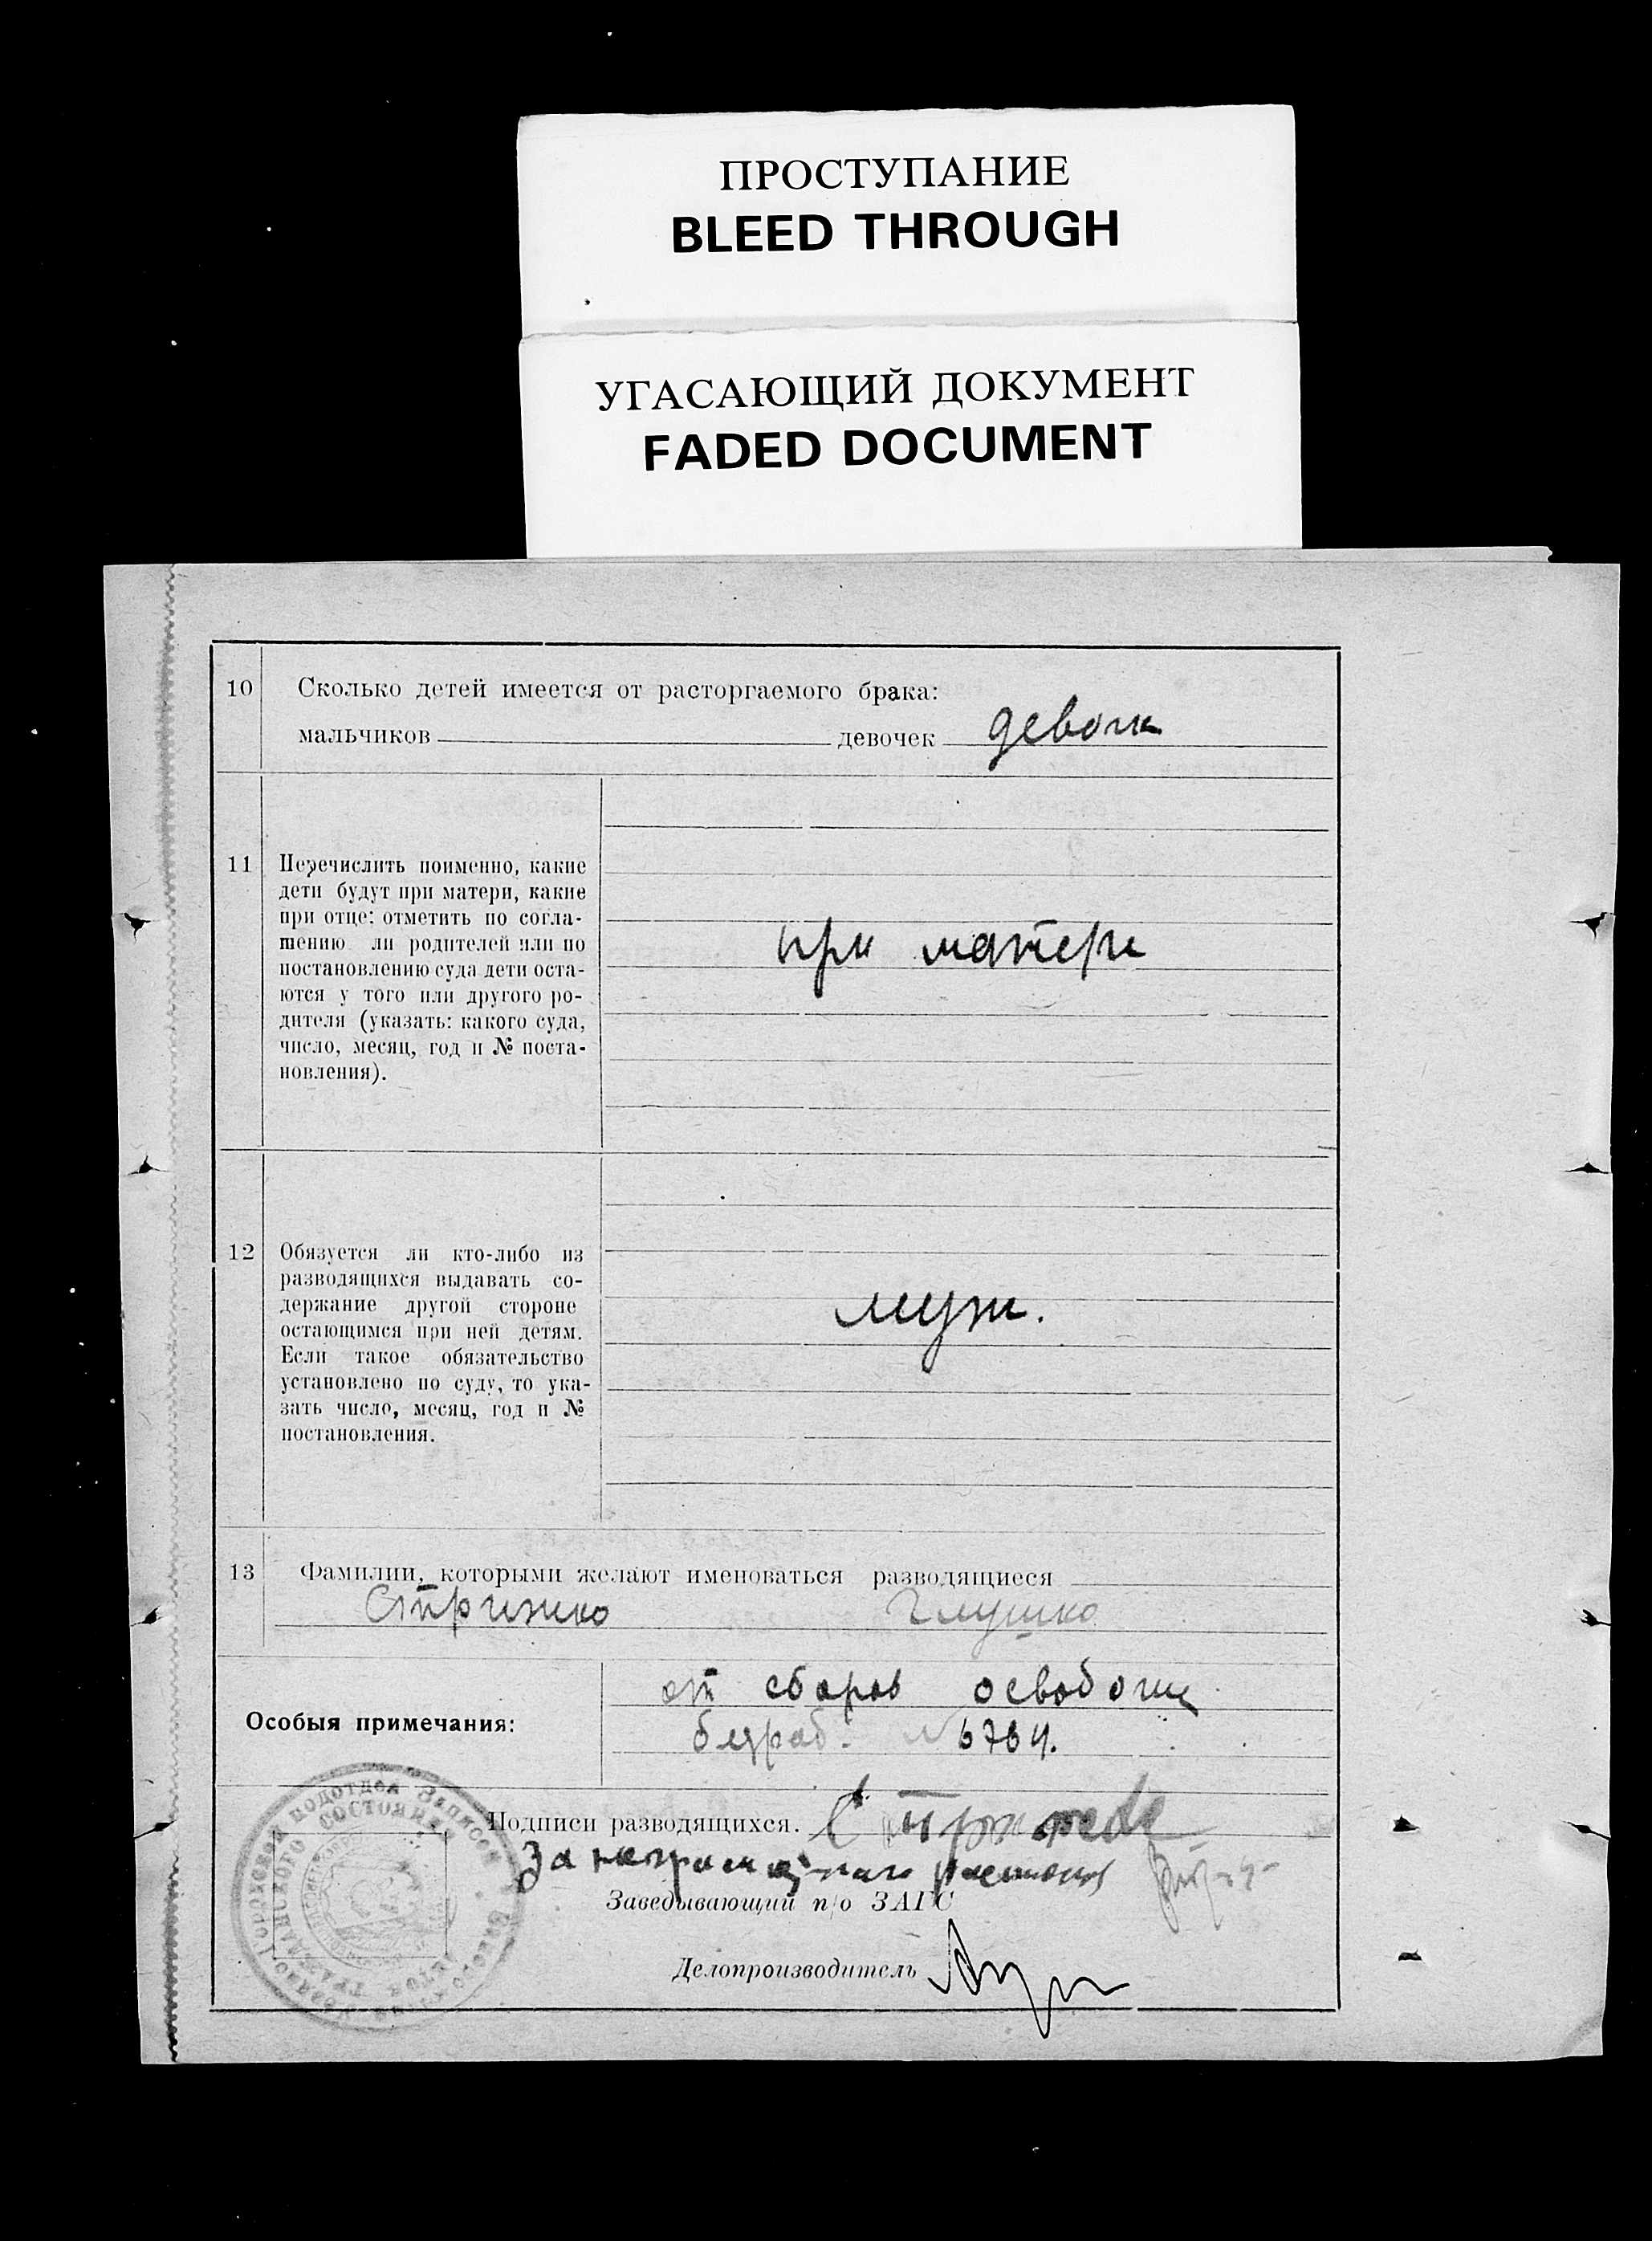 ПРОСТУПАНИЕ
BLEED THROUGH
УГАСАЮЩИЙ ДОКУМЕНТ
FADED DOCUMENT
10 Сколько детей имеется от расторгаемого брака:
мальчиков девочек девочк
11 Перечислить поименно, какие
дети будут при матери, какие
при отце: отметить по согла-
шению ли родителей или по
постановлению суда дети оста-
ются у того или другого ро-
дителя (указать: какого суда,
число, месяц, год и № поста-
новления).
при матери
12 Обязуется ли кто-либо из
разводящихся выдавать со-
держание другой стороне
остающимся при ней детям.
Если такое обязательство
установлено по суду, то ука-
зать число, месяц, год и №
постановления.
муж.
13 Фамилии, которыми желают именоваться разводящиеся
Стрижко Глушко
Особыя примечания:
от сборов
безраб. № 6764.
Подписи разводящихся.
За неграмотного
Заведывающий п/о ЗАГС
Делопроизводитель
подотдел Записей
СОСТОЯНИЯ